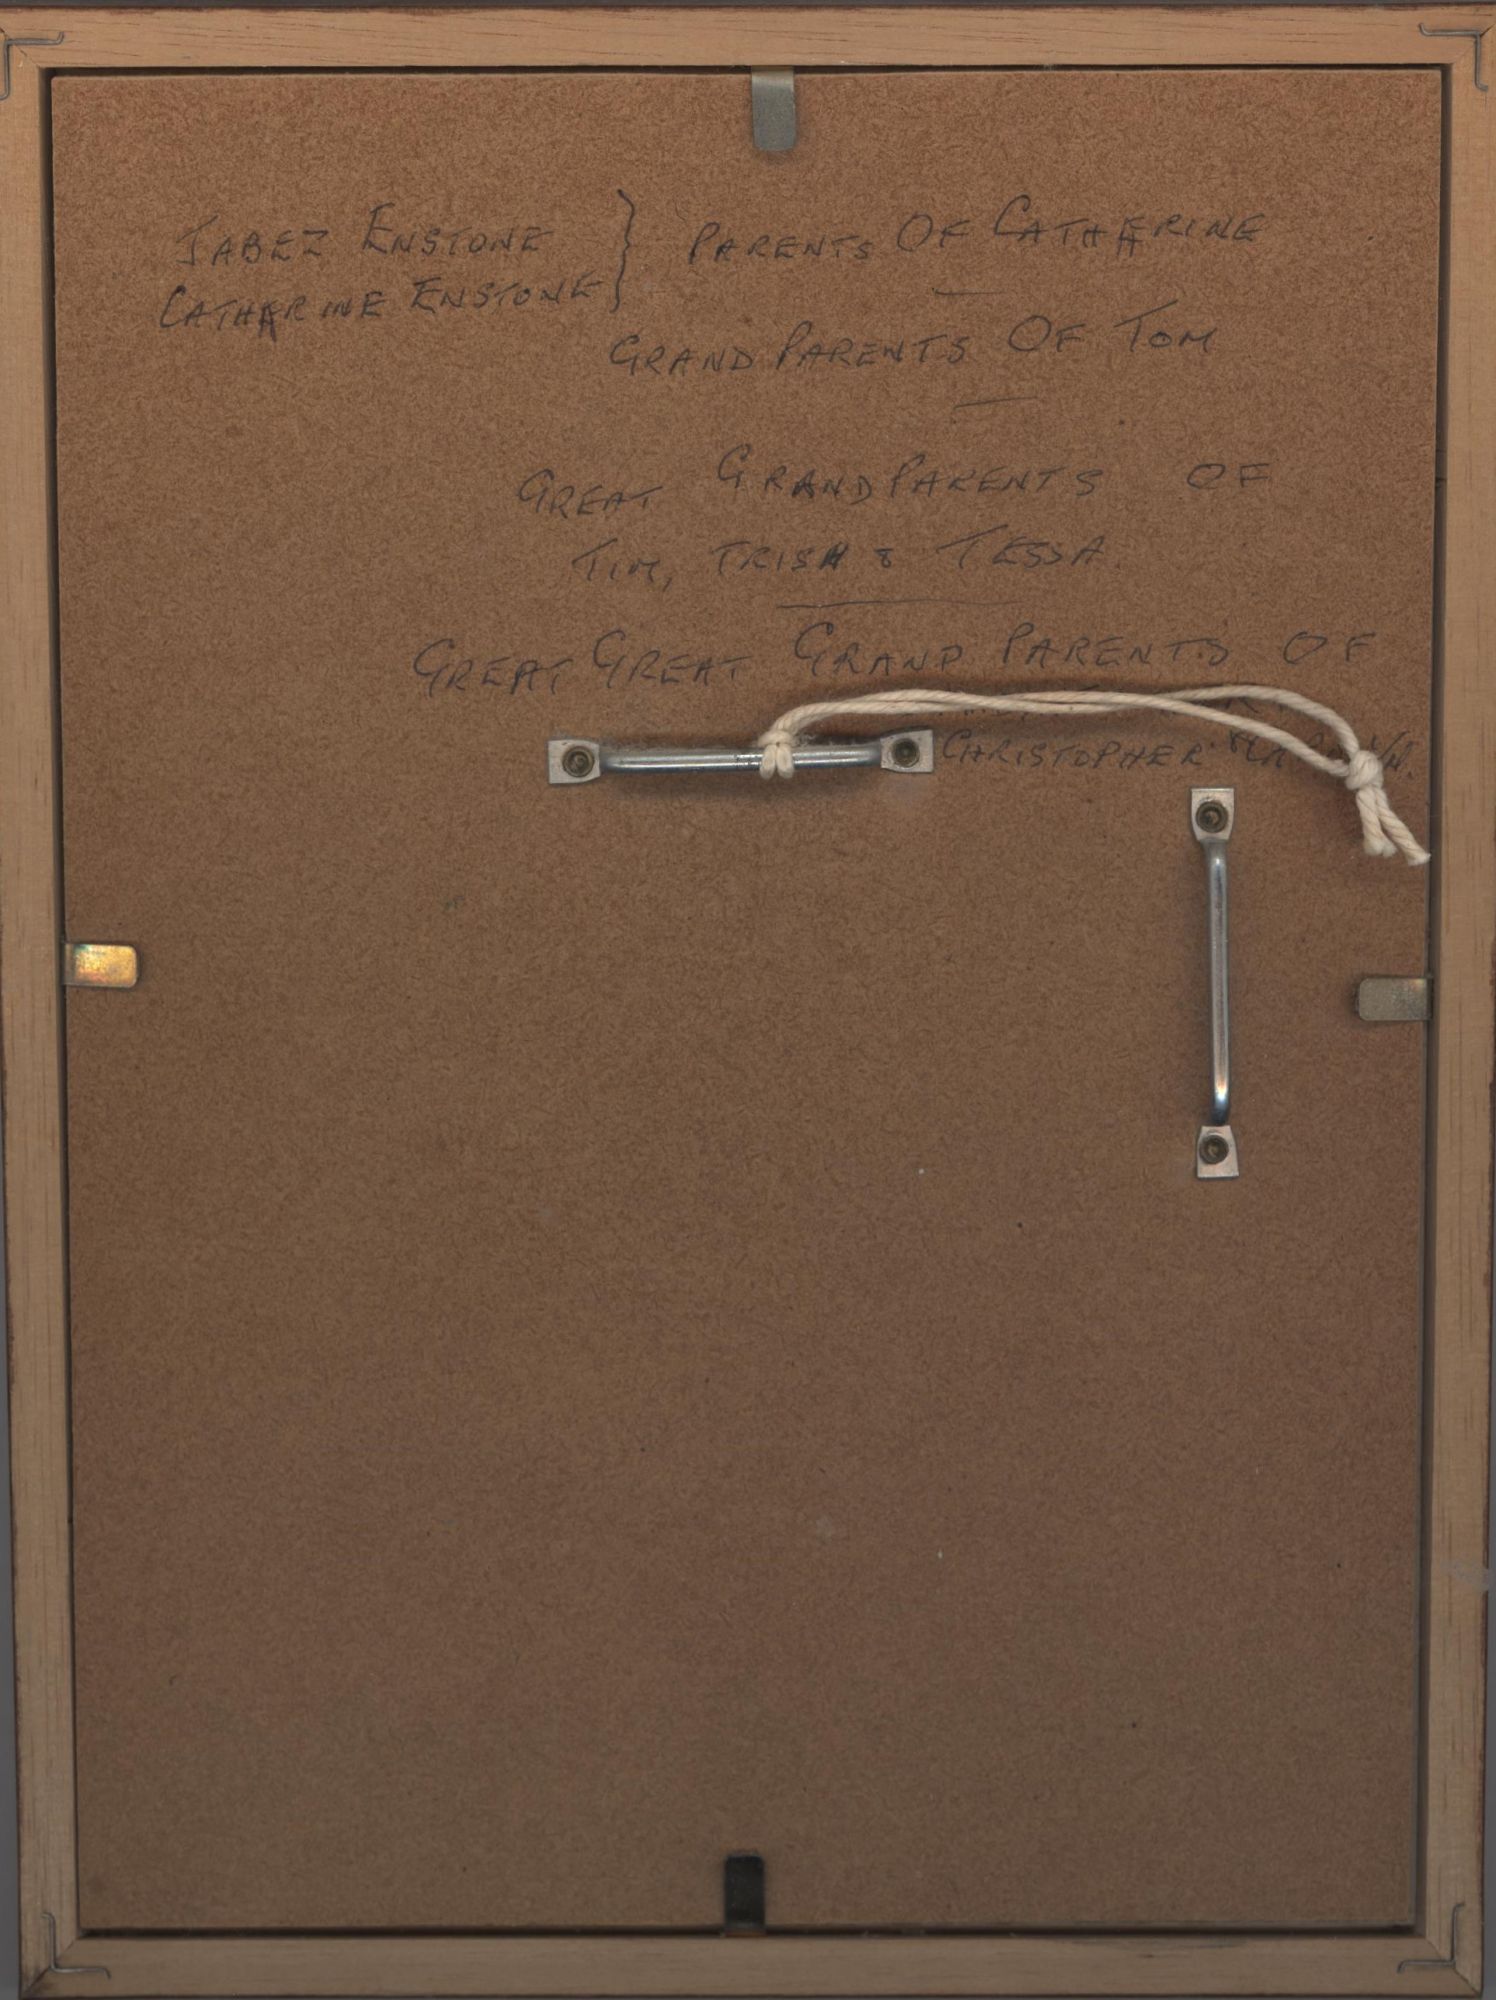 JABEZ ENSTONE } PARENTS OF CATHERINE
CATHERINE ENSTONE
GRAND PARENTS OF TOM
GREAT GRANDPARENTS OF
TIM, TRISH & TESSA
GREAT GREAT GRAND PARENTS OF
CHRISTOPHER